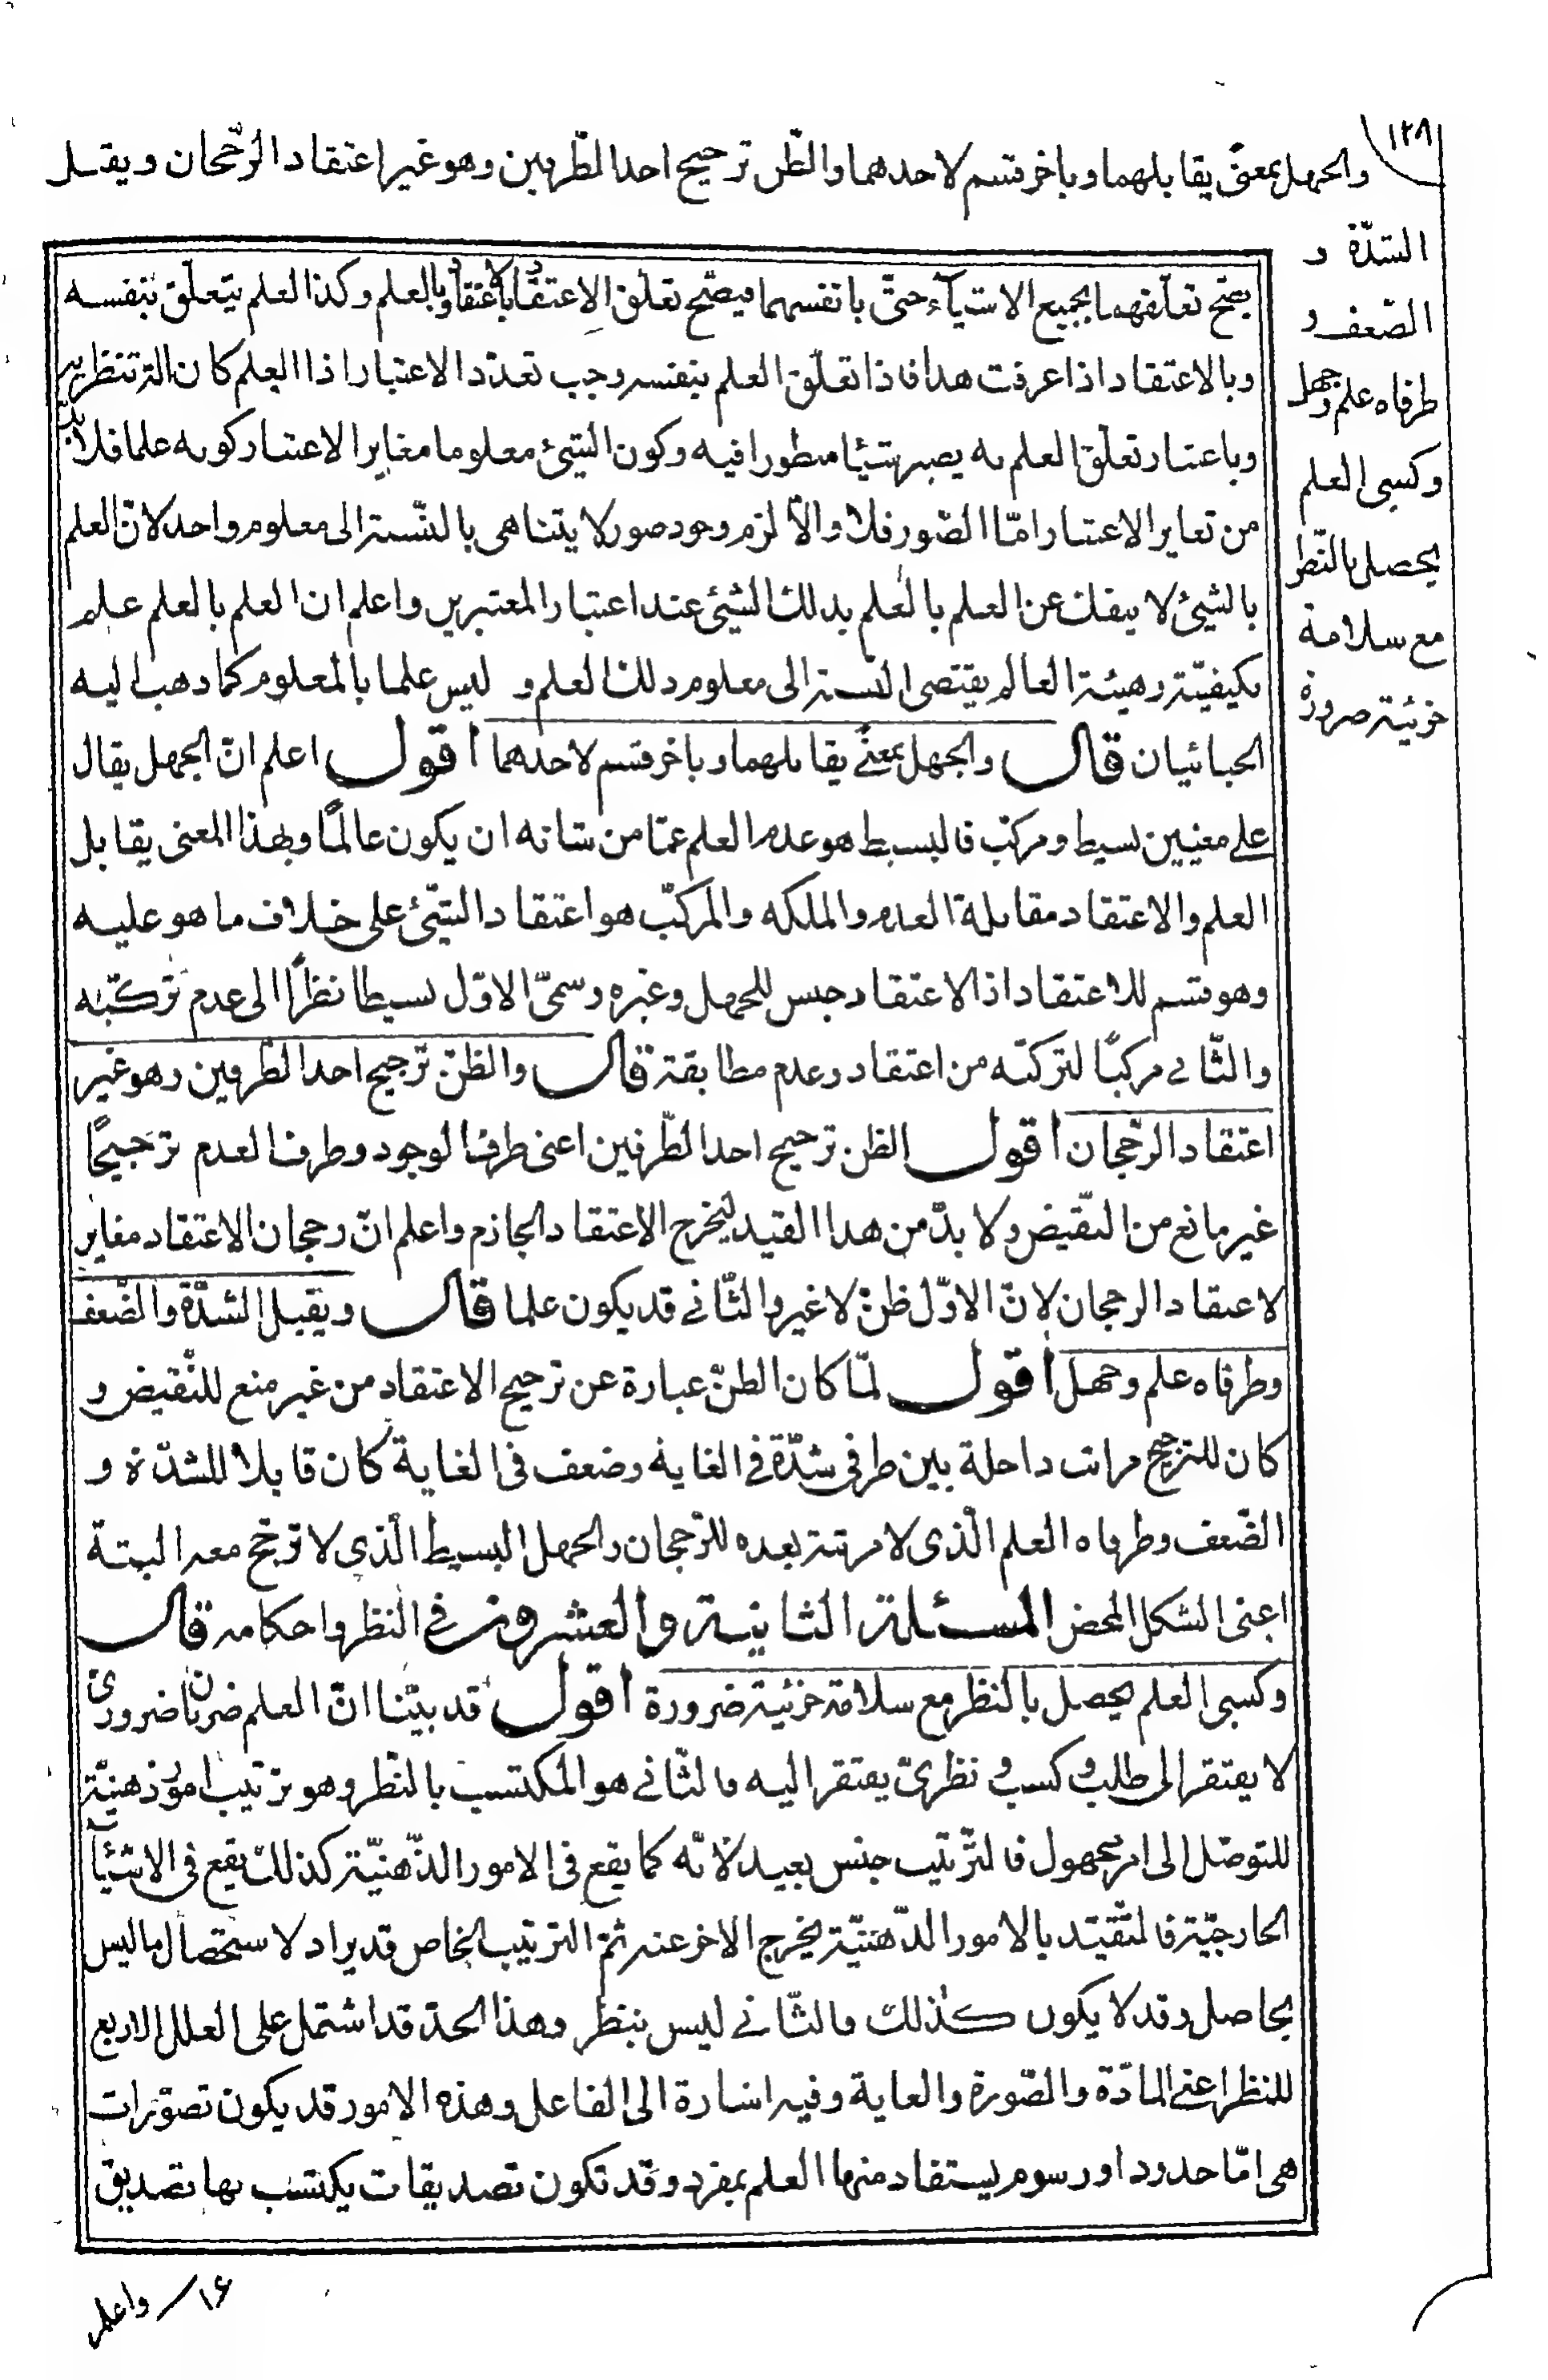 ١٢٨
والجهل بمعنى يقابلهما وبآخر قسم لاحدهما والظن ترجيح احد الطرفين وهو غير اعتقاد الرجحان ويقبل
الشدّة و
الضعف و
طرفاه علم وجهل
وكسبى العلم
يحصل بالنظر
مع سلامة
جزئيه ضرورة
يصح تعلقهما بجميع الاشيآء حتى بانفسهما فيصح تعلق الاعتقاد بالاعتقاد وبالعلم وكذا العلم يتعلق بنفسه
وبالاعتقاد اذا عرفت هذا فاذا تعلق العلم بنفسه وجب تعدّد الاعتبار اذا العلم كان الة تنظر به
وباعتبار تعلق العلم به يصير شيئا منظورا فيه وكون الشيئ معلوما مغاير الاعتبار كونه علما فلا بدّ
من تغاير الاعتبار امّا الصّور فلا والاّ لزم وجود صور لا يتناهى بالنّسبة الى معلوم واحد لانّ العلم
بالشيئ لا ينفك عن العلم بالعلم بذلك الشيئ عند اعتبار المعتبرين واعلم ان العلم بالعلم علم
بكيفيّة وهيئة العالم يقتضى النسبة الى معلوم ذلك العلم و ليس علما بالمعلوم كما ذهب اليه
الجبائيان قال والجهل بمعنى يقابلهما وبآخر قسم لاحدهما اقول اعلم انّ الجهل يقال
على معنيين بسيط ومركّب فالبسيط هو عدم العلم عمّا من شانه ان يكون عالمًا وبهذا المعنى يقابل
العلم والاعتقاد مقابلة العدم والملكه والمركّب هو اعتقاد الشّيئ على خلاف ما هو عليه
وهو قسم للاعتقاد اذ الاعتقاد جنس للجهل وغيره وسمّى الاوّل بسيطا نظرًا الى عدم تركّبه
والثّانى مركبًا لتركّبه من اعتقاد وعدم مطابقة قال والظنّ ترجيح احد الطّرفين وهو غير
اعتقاد الرّجحان اقول الظن ترجيح احد الطّرفين اعنى طرف الوجود وطرف العدم ترجيحًا
غير مانع من النّقيض ولا بدّ من هذا القيد ليخرج الاعتقاد الجازم واعلم انّ رجحان الاعتقاد مغاير
لاعتقاد الرجحان لانّ الاوّل ظنّ لا غير والثّانى قد يكون علما قال ويقبل الشدّة والضّعف
وطرفاه علم وجهل اقول لمّا كان الظنّ عبارة عن ترجيح الاعتقاد من غير منع للنّقيض و
كان للترجيح مراتب داخلة بين طرفى شدّة فى الغاية وضعف فى الغاية كان قابلا للشدّة و
الضّعف وطرفاه العلم الّذى لا مرتبة بعده للرّجحان والجهل البسيط الّذى لا ترجّح معه البتة
اعنى الشكل المحض المسئلة الثانية والعشرون فى النظر واحكامه قال
وكسبى العلم يحصل بالنظر مع سلامة جزئيه ضرورة اقول قد بيّنا انّ العلم ضربان ضرورىّ
لا يفتقر الى طلب و كسب و نظرىّ يفتقر اليه فالثّانى هو المكتسب بالنّظر وهو ترتيب امور ذهنيّة
للتوصّل الى امر مجهول فالترّتيب جنس بعيد لانّه كما يقع فى الامور الذّهنيّة كذلك يقع فى الاشيآء
الخارجيّة فالتّقيّد بالامور الذّهنيّة يخرج الاخر عنه ثمّ الترتيب الخاص قد يراد لاستحصال ما ليس
بحاصل وقد لا يكون كذلك فالثّانى ليس بنظر وهذا الحدّ قد اشتمل على العلل الاربع
للنظر اعنى المادّة والصّورة والغاية وفيه اشارة الى الفاعل وهذه الامور قد يكون تصوّرات
هى امّا حدود او رسوم يستفاد منها العلم بمفرد وقد تكون تصديقات يكتسب بها تصديق
١۶
واعلم